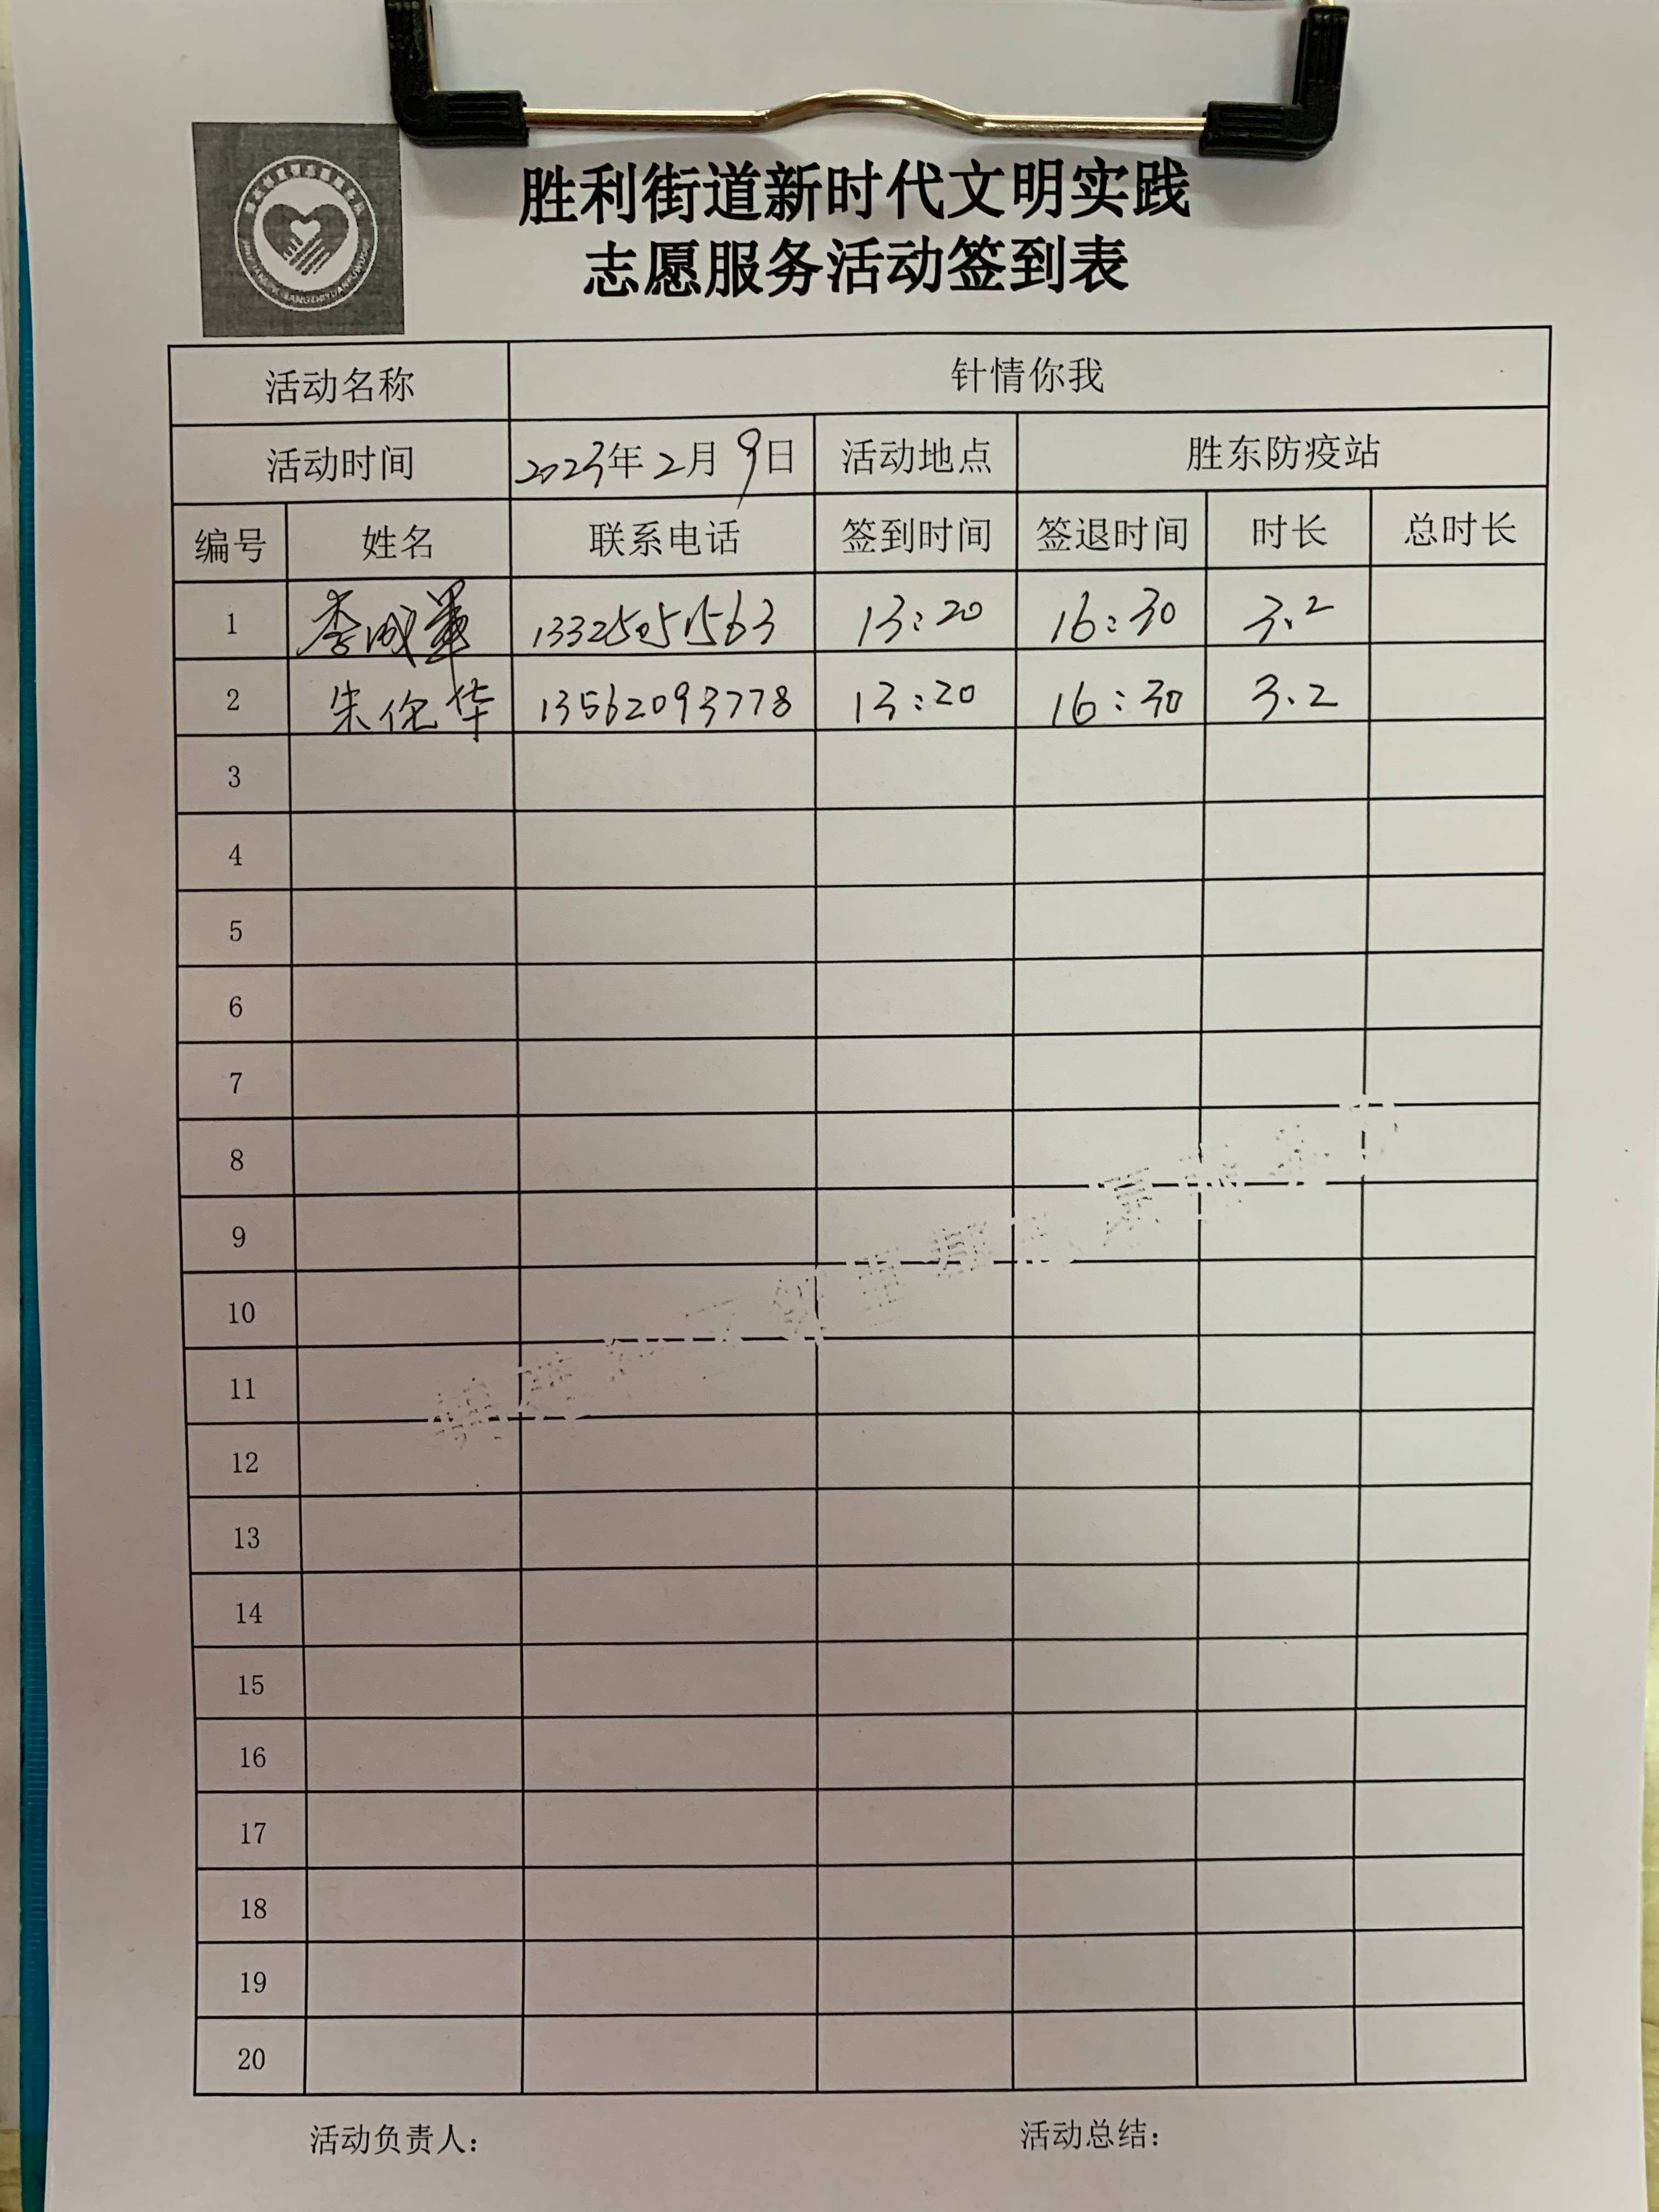 胜利街道新时代文明实践
志愿服务活动签到表
活动名称 针情你我
活动时间 2023年2月9日 活动地点 胜东防疫站
编号 姓名 联系电话 签到时间 签退时间 时长 总时长
1 李成军 13:20 16:30 3.2
2 朱 华 13562093778 13:20 16:30 3.2
3
4
5
6
7
8
9
10
11
12
13
14
15
16
17
18
19
20
活动负责人： 活动总结：